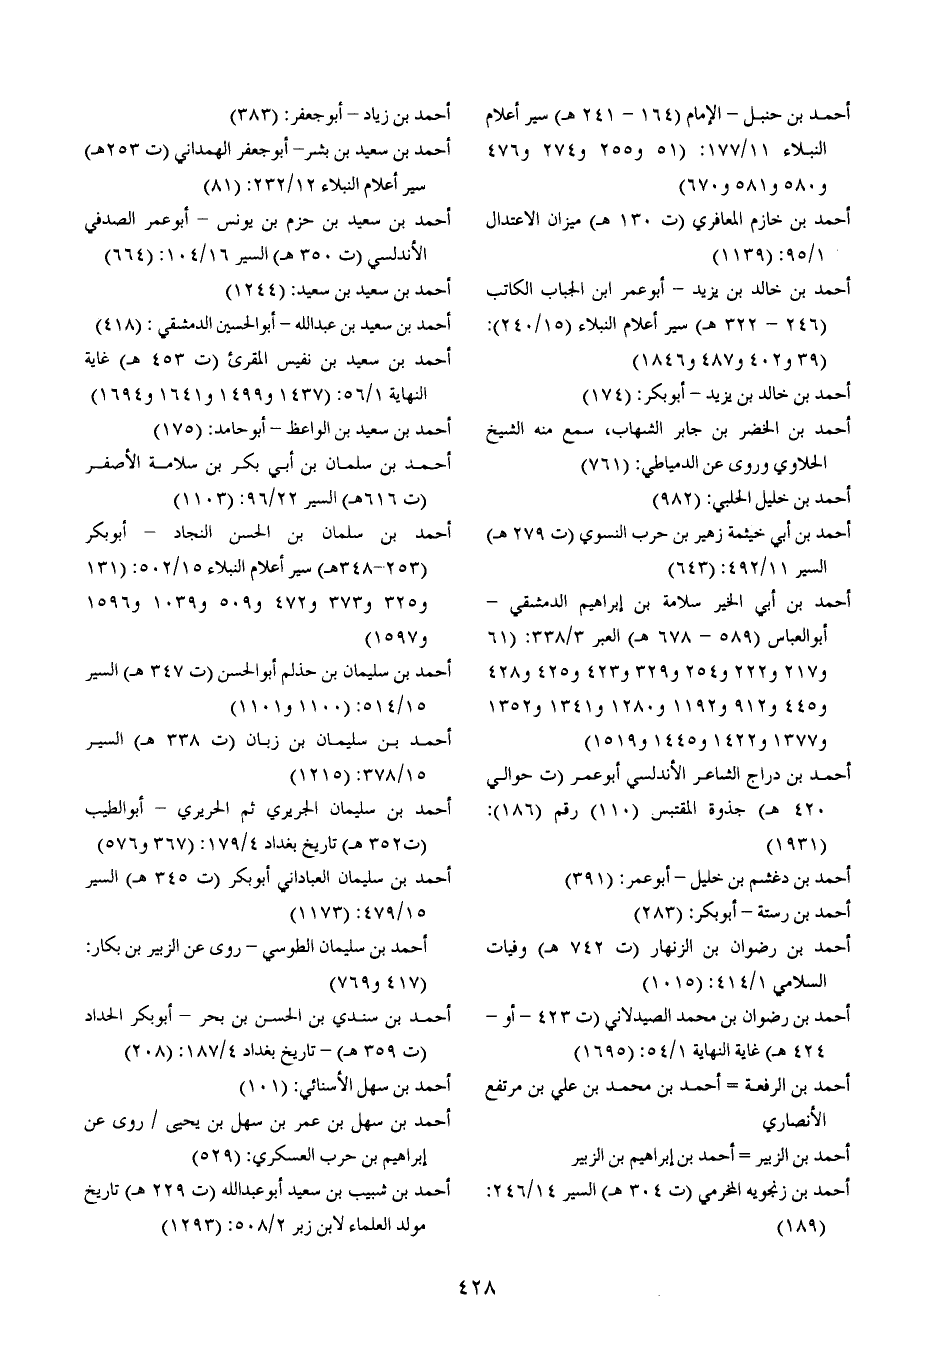 أحمد بن حنبل – الإمام (١٦٤ – ٢٤١ هـ) سير أعلام
النبلاء ١٧٧/١١: (٥١ و٢٥٥ و٢٧٤ و٤٧٦
و٥٨٠ و٥٨١ و٦٧٠)
أحمد بن خازم المعافري (ت ١٣٠ هـ) ميزان الاعتدال
٩٥/١: (١١٣٩)
أحمد بن خالد بن يزيد – أبوعمر ابن الجباب الكاتب
(٢٤٦ – ٣٢٢ هـ) سير أعلام النبلاء (٢٤٠/١٥):
(٣٩ و٤٠٢ و٤٨٧ و١٨٤٦)
أحمد بن خالد بن يزيد – أبوبكر: (١٧٤)
أحمد بن الخضر بن جابر الشهاب، سمع منه الشيخ
الحلاوي وروى عن الدمياطي: (٧٦١)
أحمد بن خليل الحلبي: (٩٨٢)
أحمد بن أبي خيثمة زهير بن حرب النسوي (ت ٢٧٩ هـ)
السير ٤٩٢/١١: (٦٤٣)
أحمد بن أبي الخير سلامة بن إبراهيم الدمشقي –
أبوالعباس (٥٨٩ – ٦٧٨ هـ) العبر ٣٣٨/٣: (٦١
و٢١٧ و٢٢٢ و٢٥٤ و٣٢٩ و٤٢٣ و٤٢٥ و٤٢٨
و٤٤٥ و٩١٢ و١١٩٢ و١٢٨٠ و١٣٤١ و١٣٥٢
و١٣٧٧ و١٤٢٢ و١٤٤٥ و١٥١٩)
أحمد بن دراج الشاعر الأندلسي أبوعمر (ت حوالي
٤٢٠ هـ) جذوة المقتبس (١١٠) رقم (١٨٦):
(١٩٣١)
أحمد بن دغشم بن خليل – أبوعمر: (٣٩١)
أحمد بن رستة – أبوبكر: (٢٨٣)
أحمد بن رضوان بن الزنهار (ت ٧٤٢ هـ) وفيات
السلامي ٤١٤/١: (١٠١٥)
أحمد بن رضوان بن محمد الصيدلاني (ت ٤٢٣ – أو –
٤٢٤ هـ) غاية النهاية ٥٤/١: (١٦٩٥)
أحمد بن الرفعة = أحمد بن محمد بن علي بن مرتفع
الأنصاري
أحمد بن الزبير = أحمد بن إبراهيم بن الزبير
أحمد بن زنجويه المخرمي (ت ٣٠٤ هـ) السير ٢٤٦/١٤:
(١٨٩)
أحمد بن زياد – أبوجعفر: (٣٨٣)
أحمد بن سعيد بن بشر– أبوجعفر الهمداني (ت ٢٥٣هـ)
سير أعلام النبلاء ٢٣٢/١٢: (٨١)
أحمد بن سعيد بن حزم بن يونس – أبوعمر الصدفي
الأندلسي (ت ٣٥٠ هـ) السير ١٠٤/١٦: (٦٦٤)
أحمد بن سعيد بن سعيد: (١٢٤٤)
أحمد بن سعيد بن عبدالله – أبوالحسين الدمشقي : (٤١٨)
أحمد بن سعيد بن نفيس المقرئ (ت ٤٥٣ هـ) غاية
النهاية ٥٦/١: (١٤٣٧ و١٤٩٩ و١٦٤١ و١٦٩٤)
أحمد بن سعيد بن الواعظ – أبوحامد: (١٧٥)
أحمد بن سلمان بن أبي بكر بن سلامة الأصفر
(ت ٦١٦هـ) السير ٩٦/٢٢: (١١٠٣)
أحمد بن سلمان بن الحسن النجاد – أبوبكر
(٢٥٣–٣٤٨هـ) سير أعلام النبلاء ٥٠٢/١٥: (١٣١
و٣٢٥ و٣٧٣ و٤٧٢ و٥٠٩ و١٠٣٩ و١٥٩٦
و١٥٩٧)
أحمد بن سليمان بن حذلم أبوالحسن (ت ٣٤٧ هـ) السير
٥١٤/١٥: (١١٠٠ و١١٠١)
أحمد بن سليمان بن زبان (ت ٣٣٨ هـ) السير
٣٧٨/١٥: (١٢١٥)
أحمد بن سليمان الجريري ثم الحريري – أبوالطيب
(ت٣٥٢ هـ) تاريخ بغداد ١٧٩/٤: (٣٦٧ و٥٧٦)
أحمد بن سليمان العباداني أبوبكر (ت ٣٤٥ هـ) السير
٤٧٩/١٥: (١١٧٣)
أحمد بن سليمان الطوسي – روى عن الزبير بن بكار:
(٤١٧ و٧٦٩)
أحمد بن سندي بن الحسن بن بحر – أبوبكر الحداد
(ت ٣٥٩ هـ) – تاريخ بغداد ١٨٧/٤: (٢٠٨)
أحمد بن سهل الأسنائي: (١٠١)
أحمد بن سهل بن عمر بن سهل بن يحيى / روى عن
إبراهيم بن حرب العسكري: (٥٢٩)
أحمد بن شبيب بن سعيد أبوعبدالله (ت ٢٢٩ هـ) تاريخ
مولد العلماء لابن زبر ٥٠٨/٢: (١٢٩٣)
٤٢٨